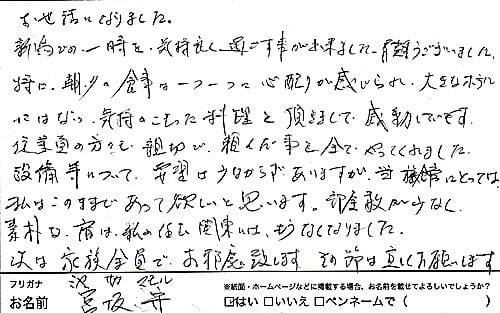 お世話になりました。
新潟での一時を、気持良く過ごす事が出来ました。有難うございました。
特に、朝夕の食事は一つ一つに心配りが感じられ、大きなホテル
にはない、気持のこもった料理を頂きまして感動しています。
従業員の方々も親切で、頼んだ事を全てやってくれました。
設備等について、要望は少なからずありますが、当旅館にとっては
私はこのままであって欲しいと思います。部屋数が少なく、
素朴な宿は、私の住む関東には、少なくなりました。
次は家族全員で、お邪魔致します。その節は宜しくお願いします
フリガナ
お名前 宮坂 守
※紙面・ホームページなどに掲載する場合、お名前を載せてよろしいでしょうか?
☑はい □いいえ □ペンネームで( )